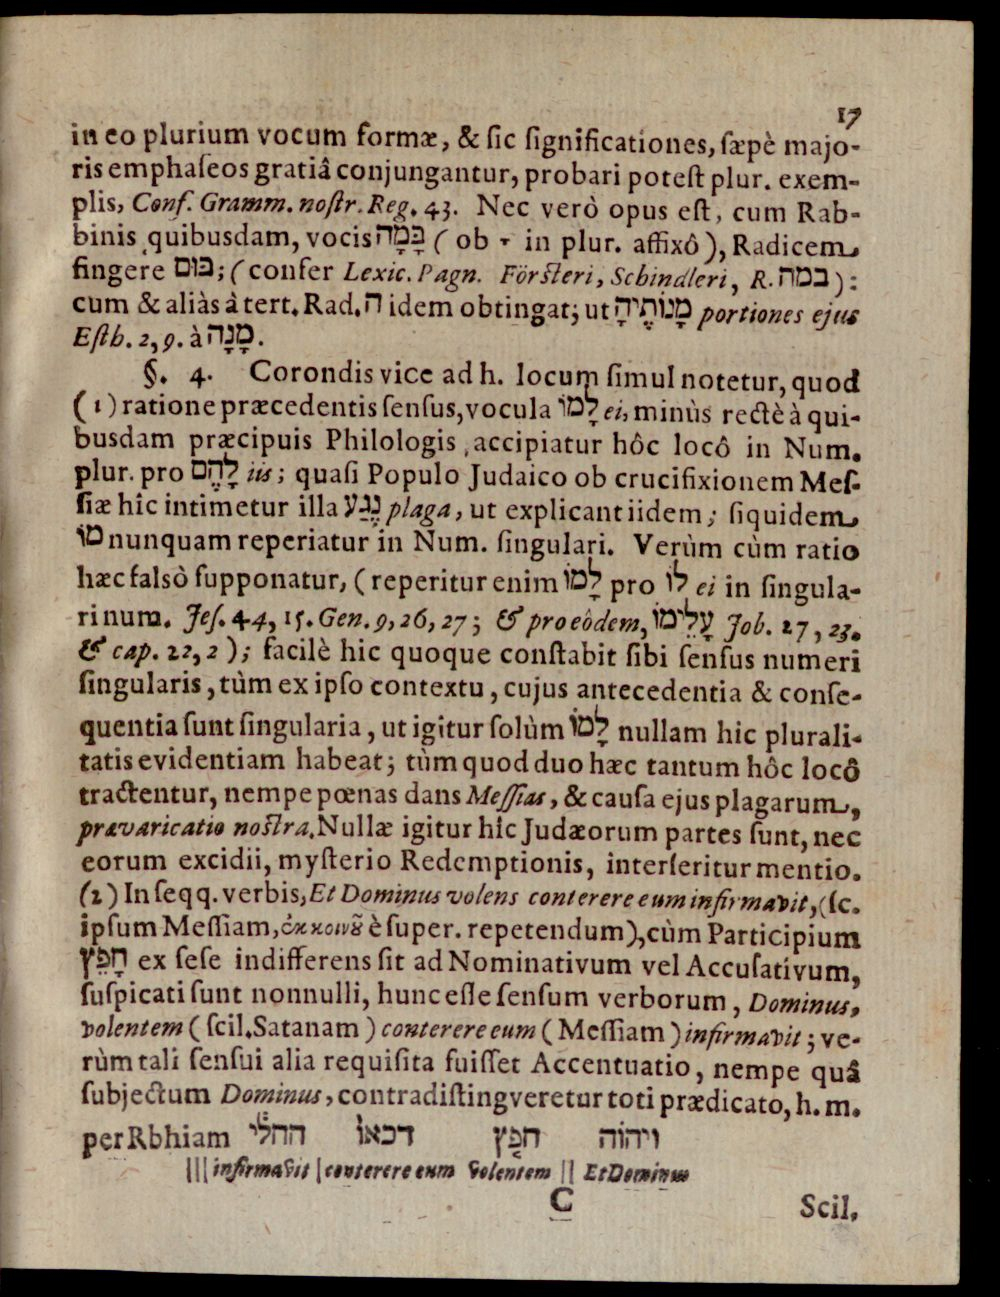 17
in eo plurium vocum formæ, & ſic ſignificationes, ſæpè majo-
ris emphaſeos gratiâ conjungantur, probari poteſt plur. exem-
plis, Conf. Gramm. noſtr. Reg. 43. Nec verò opus eſt, cum Rab-
binis quibusdam, vocis בָּמָה ( ob ָ in plur. affixô ), Radicem
fingere בום; ( confer Lexic. Pagn. Förſteri, Schindleri, R. במה ):
cum & aliàs à tert. Rad. ה idem obtingat; ut מָנוֹתֶיהָ portiones ejus
Eſth. 2, 9. à מָנָה.
§. 4. Corondis vice ad h. locum ſimul notetur, quod
( 1 ) ratione præcedentis ſenſus, vocula לָמוֹ ei, minùs rectè à qui-
busdam præcipuis Philologis accipiatur hôc locô in Num.
plur. pro לָהֶם iis ; quaſi Populo Judaico ob crucifixionem Meſ-
ſiæ hîc intimetur illa נֶגַע plaga, ut explicant iidem ; ſiquidem
מוֹ nunquam reperiatur in Num. ſingulari. Verùm cùm ratio
hæc falsò ſupponatur, ( reperitur enim לָמוֹ pro לוֹ ei in ſingula-
ri num. Jeſ. 44, 15. Gen. 9, 26, 27 ; & pro eôdem, עָלֵימוֹ Job. 27, 23.
& cap. 22, 2 ) ; facilè hic quoque conſtabit ſibi ſenſus numeri
ſingularis, tùm ex ipſo contextu, cujus antecedentia & conſe-
quentia ſunt ſingularia, ut igitur ſolùm לָמוֹ nullam hic plurali-
tatis evidentiam habeat; tùm quod duo hæc tantum hôc locô
tractentur, nempe pœnas dans Meſſias, & cauſa ejus plagarum,
prævaricatio noſtra. Nullæ igitur hîc Judæorum partes ſunt, nec
eorum excidii, myſterio Redemptionis, interſeritur mentio.
(2) In ſeqq. verbis, Et Dominus volens conterere eum infirmavit, (ſc.
ipſum Meſſiam, ἐκ κοινοῦ è ſuper. repetendum), cùm Participium
חָפֵץ ex ſeſe indifferens ſit ad Nominativum vel Accuſativum,
ſuſpicati ſunt nonnulli, hunc eſſe ſenſum verborum, Dominus,
volentem ( ſcil. Satanam ) conterere eum ( Meſſiam ) infirmavit ; ve-
rùm tali ſenſui alia requiſita fuiſſet Accentuatio, nempe quâ
ſubjectum Dominus, contradiſtingveretur toti prædicato, h. m.
per Rbhiam ויהוה חפץ דכאו החלי
||| infirmavit | conterere eum volentem || Et Dominus
C
Scil.